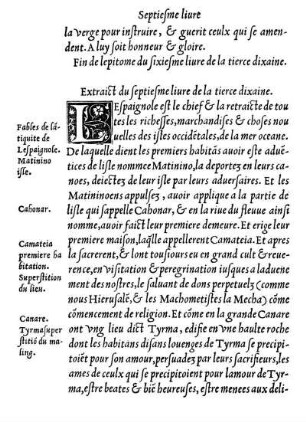 Septiesme liure
la verge pour instruire, & guerir ceulx qui se amen-
dent. A luy soit honneur & gloire.
Fin de lepitome du sixiesme liure de la tierce dixaine.
Extraict du septiesme liure de la tierce dixaine.
LEspaignole est le chief & la retraicte de tou
tes les richesses, marchandises & choses nou
uelles des isles occidētales, de la mer oceane.
De laquelle dient les premiers habitās auoir este aduē-
tices de lisle nommee Matinino, la deportez en leurs ca-
noes, deiectez de leur isle par leurs aduersaires. Et les
Matininoens appulsez, auoir applique a la partie de
lisle qui sappelle Cahonar, & en la riue du fleuue ainsi
nomme, auoir faict leur premiere demeure. Et erige leur
premiere maison, laq̄lle appellerent Camateia. Et apres
la sacrerent, & lont tousiours eu en grand cult & reue-
rence, en visitation & peregrination iusques a laduene
ment des nostres, le saluant de dons perpetuelz (comme
nous Hierusalē, & les Machometistes la Mecha) cōme
cōmencement de religion. Et cōme en la grande Canare
ont vng lieu dict Tyrma, edifie en vne haulte roche
dont les habitans disans louenges de Tyrma se precipi-
toiēt pour son amour, persuadez par leurs sacrifieurs, les
ames de ceulx qui se precipitoient pour lamour de Tyr-
ma, estre beates & biē heureuses, estre menees aux deli-
Fables de lā-
tiquite de
Lespaignole.
Matinino
isle.
Cahonar.
Camateia
premiere ha
bitation.
Superstition
du lieu.
Canare.
Tyrma super
stitiō du ma-
ling.